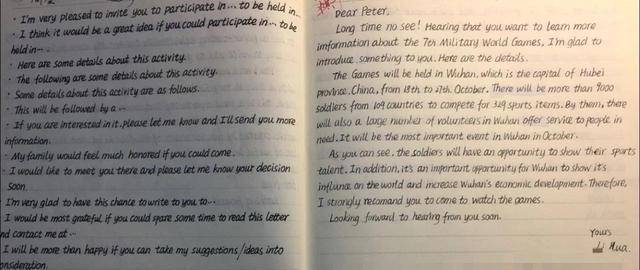 · I'm very pleased to invite you to participate in... to be held in...
· I think it would be a great idea if you could participate in... to be
held in...
· Here are some details about this activity.
· The following are some details about this activity.
· Some details about this activity are as follows.
· This will be followed by a...
· If you are interested in it, please let me know and I'll send you more
information.
· My family would feel much honored if you could come.
· I would like to meet you there and please let me know your decision
soon.
I'm very glad to have this chance to write to you to...
I would be most grateful if you could spare some time to read this letter
nd contact me at...
I will be more than happy if you can take my suggestions/ideas into
onsideration.
Dear Peter,
Long time no see! Hearing that you want to learn more
imformation about the 7th Military World Games, I'm glad to
introduce something to you. Here are the details.
The Games will be held in Wuhan, which is the capital of Hubei
province, China, from 18th to 27th, October. There will be more than 9000
soldiers from 109 countries to compete for 329 sports items. By them, there
will also a large number of volunteers in Wuhan offer service to people in
need. It will be the most important event in Wuhan in October.
As you can see, the soldiers will have an opportunity to show their sports
talent. In addition, it's an important opportunity for Wuhan to show it's
influnce on the world and increase Wuhan's economic development. Therefore,
I strongely recomand you to come to watch the games.
Looking forward to hearing from you soon.
Yours
Hua.